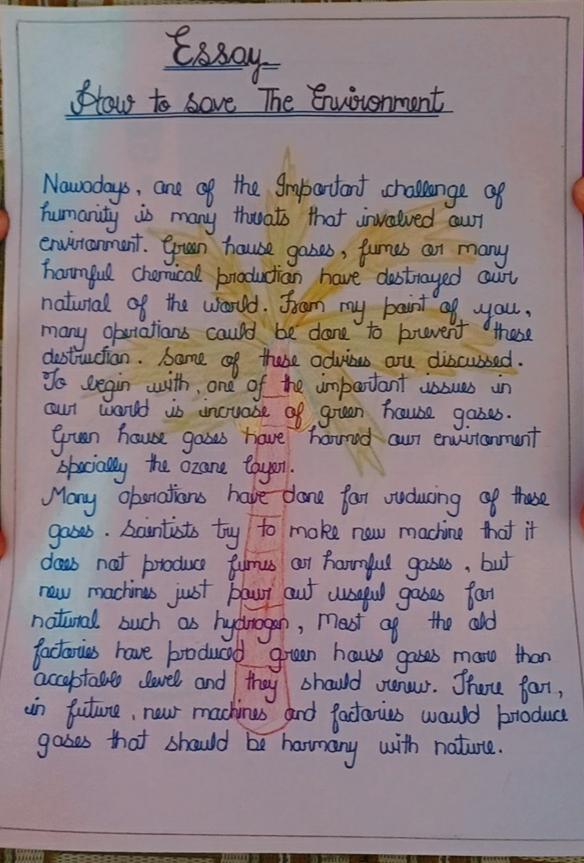 Essay
How to save The Environment
Nawadays, one of the Important challenge of
humanity is many threats that involved our
environment. Green house gases, fumes or many
harmful chemical production have destrayed our
natural of the world. From my point of you,
many operations could be done to prevent these
destruction. Some of these advises are discussed.
To begin with, one of the important issues in
our world is increase of green house gases.
Green house gases have harmed our environment
specially the ozane layer.
Many operations have done for reducing of these
gases. Scientists try to make new machine that it
does not produce fumes or harmful gases, but
new machines just pour out useful gases for
natural such as hydrogen, Most of the old
factories have produced green house gases more than
acceptable level and they should renew. There for,
in future, new machines and factories would produce
gases that should be harmany with nature.